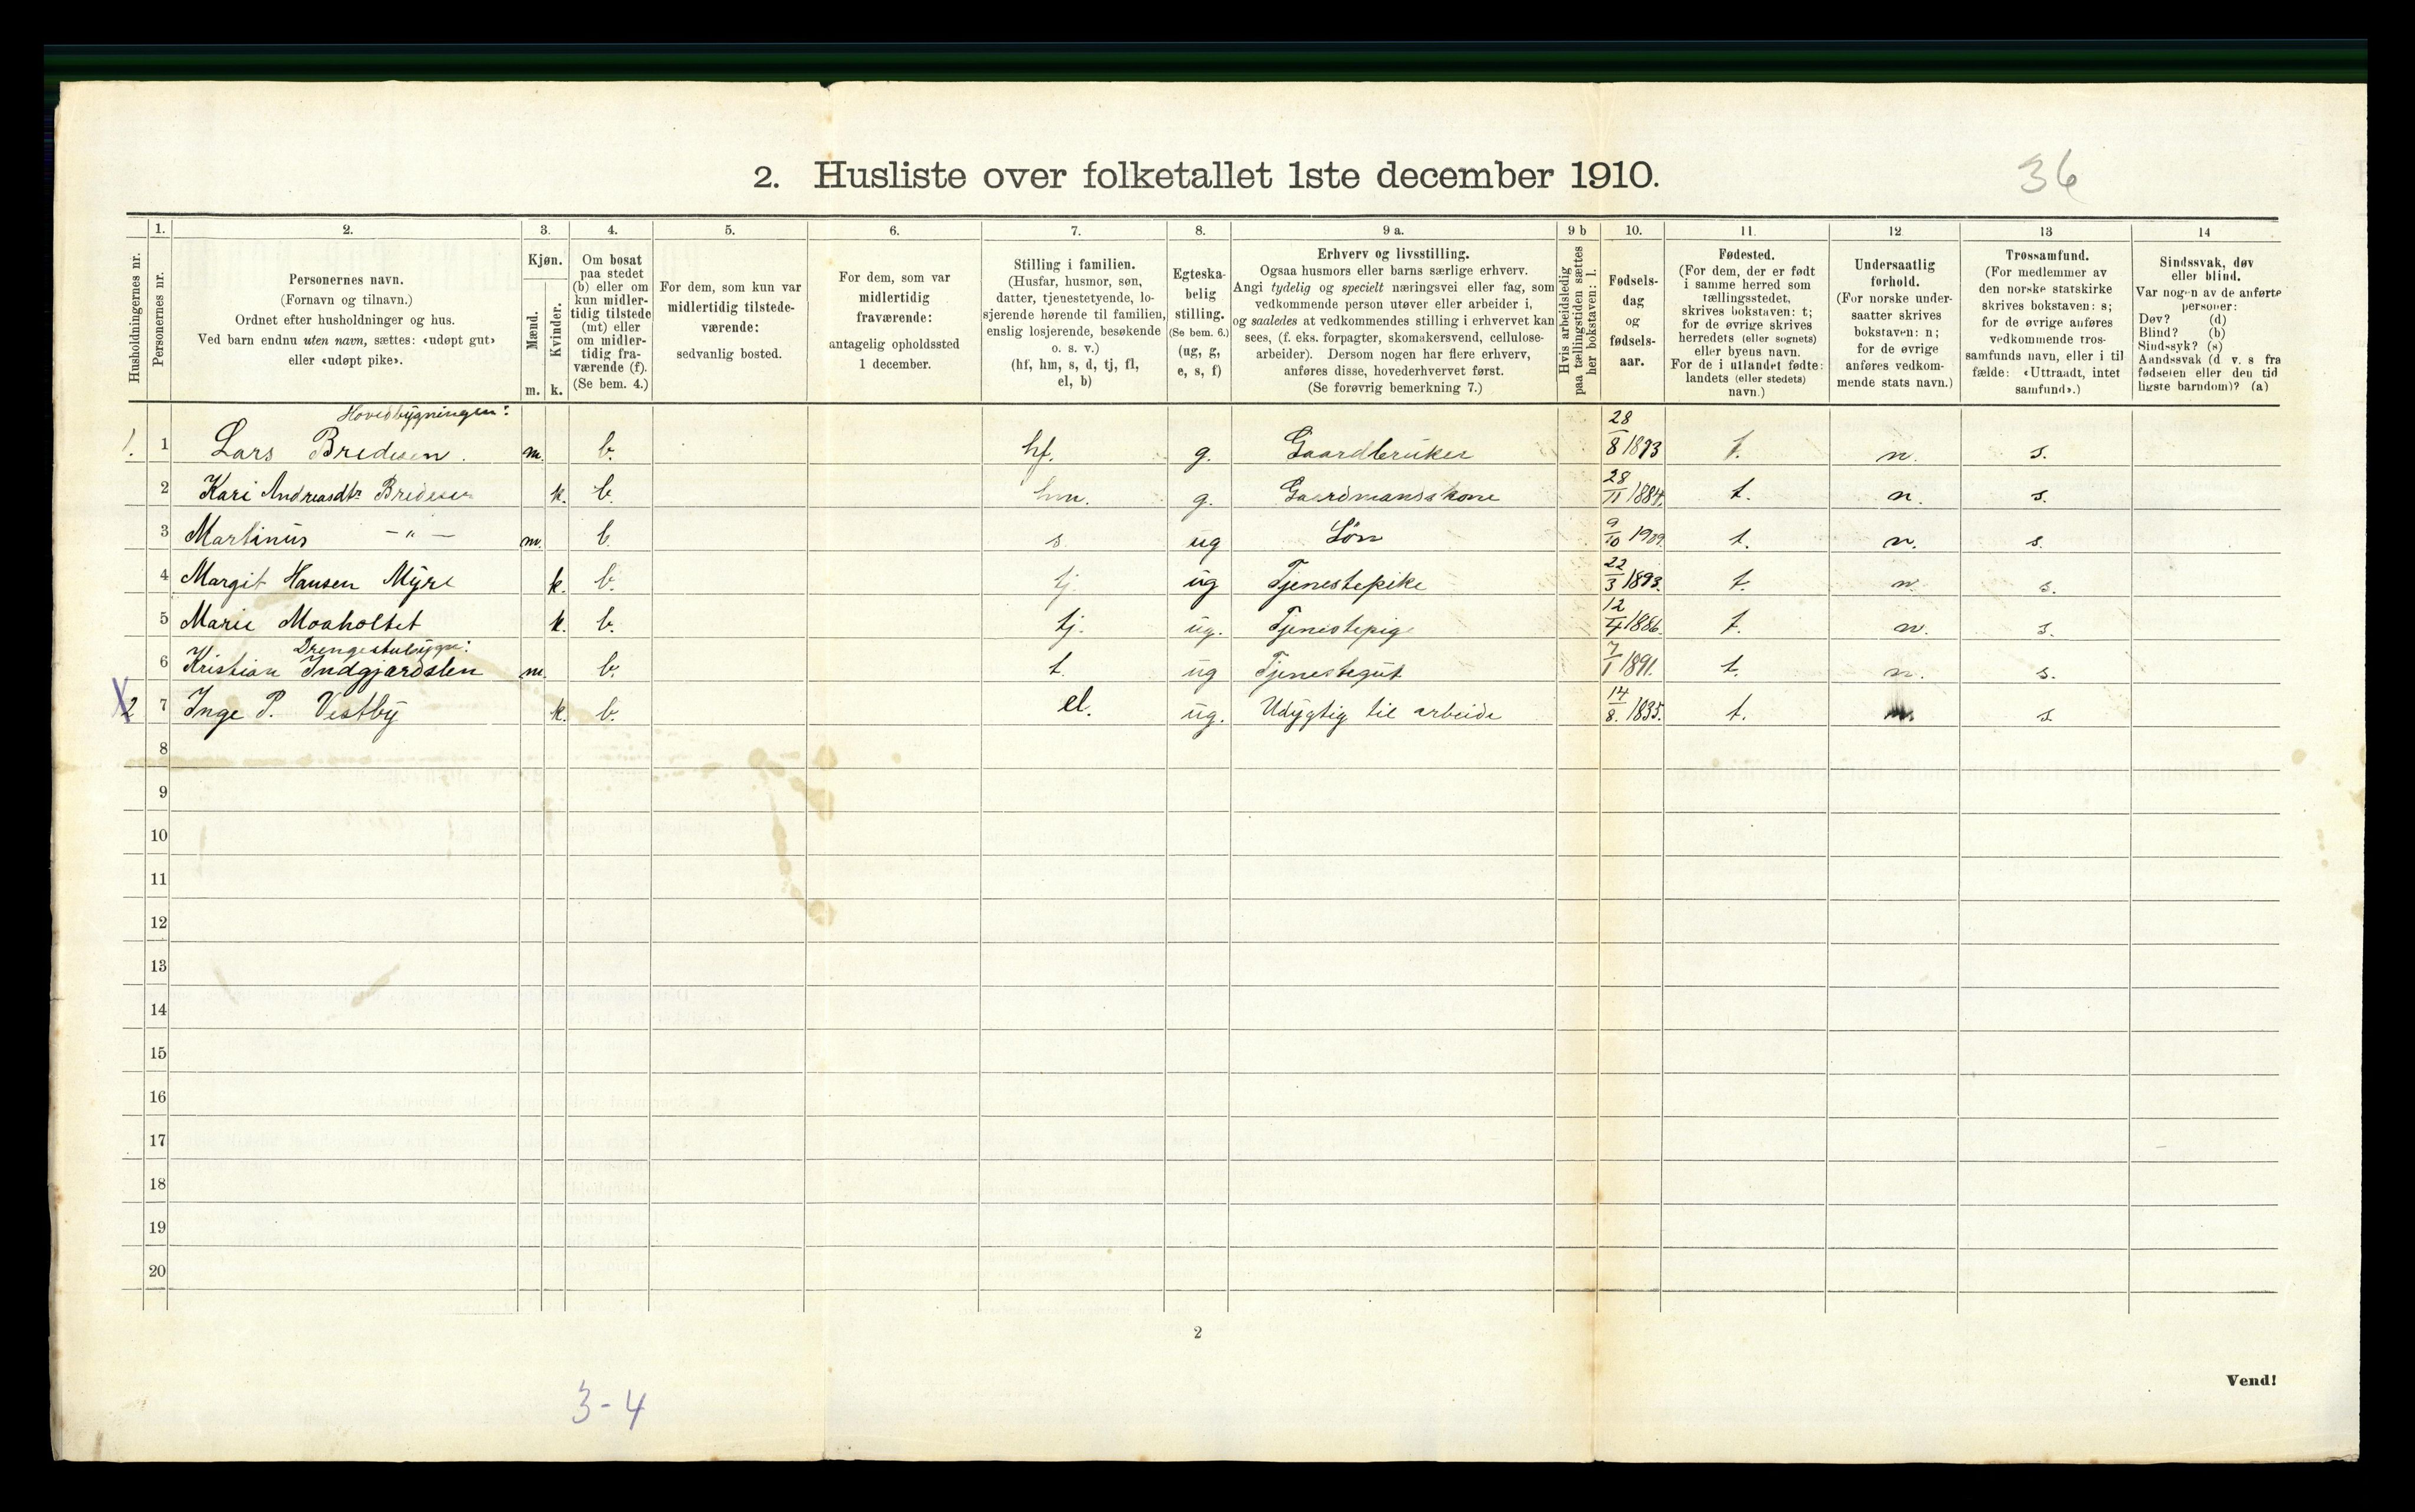 2. Husliste over folketallet 1ste december 1910.
36
Husholdningernes nr.
1.
Personernes nr.
2.
Personernes navn.
(Fornavn og tilnavn.)
Ordnet efter husholdninger og hus.
Ved barn endnu uten navn, sættes: «udøpt gut»
eller «udøpt pike».
3.
Kjøn.
Mænd.
Kvinder.
m. k.
4.
Om bosat
paa stedet
(b) eller om
kun midler-
tidig tilstede
(mt) eller
om midler-
tidig fra-
værende (f).
(Se bem. 4.)
5.
For dem, som kun var
midlertidig tilstede-
værende:
sedvanlig bosted.
6.
For dem, som var
midlertidig
fraværende:
antagelig opholdssted
1 december.
7.
Stilling i familien.
(Husfar, husmor, søn,
datter, tjenestetyende, lo-
sjerende hørende til familien,
enslig losjerende, besøkende
o. s. v.)
(hf, hm, s, d, tj, fl,
el, b)
8.
Egteska-
belig
stilling.
(Se bem. 6.)
(ug, g,
e, s, f)
9 a.
Erhverv og livsstilling.
Ogsaa husmors eller barns særlige erhverv.
Angi tydelig og specielt næringsvei eller fag, som
vedkommende person utøver eller arbeider i,
og saaledes at vedkommendes stilling i erhvervet kan
sees, (f. eks. forpagter, skomakersvend, cellulose-
arbeider). Dersom nogen har flere erhverv,
anføres disse, hovederhvervet først.
(Se forøvrig bemerkning 7.)
9 b
Hvis arbeidsledig
paa tællingstiden sættes
her bokstaven: l.
10.
Fødsels-
dag
og
fødsels-
aar.
11.
Fødested.
(For dem, der er født
i samme herred som
tællingsstedet,
skrives bokstaven: t;
for de øvrige skrives
herredets (eller sognets)
eller byens navn.
For de i utlandet fødte:
landets (eller stedets)
navn.)
12
Undersaatlig
forhold.
(For norske under-
saatter skrives
bokstaven: n;
for de øvrige
anføres vedkom-
mende stats navn.)
13
Trossamfund.
(For medlemmer av
den norske statskirke
skrives bokstaven: s;
for de øvrige anføres
vedkommende tros-
samfunds navn, eller i til
fælde: «Uttraadt, intet
samfund».)
14
Sindssvak, døv
eller blind.
Var nogen av de anførte
personer:
Døv? (d)
Blind? (b)
Sindssyk? (s)
Aandssvak (d v. s fra
fødselen eller den tid
ligste barndom)? (a)
Hovedbygningen:
1. 1 Lars Bredesen. m. b. hf. g. Gaardbruker 28/8 18 3 t. n. s.
2 Kari Andreasdtr Bredesen k. b. hm. g. Gaardmandskone 28/11 1884. t. n. s.
3 Martinus -"- m. b. s. ug Søn 9/10 1909. t. n. s.
4 Margit Hansen Myre k. b. tj. ug Tjenestepike 22/3 1893. t. n. s.
5 Marie Moaholtet k. b. tj. ug. Tjenestepige 12/4 1886. t. n. s.
Drengestubygn:
6 Kristian Indgjærdslen m. b. t. ug Tjenestegut 7/1 1891. t. n. s.
X 2 7 Inge P. Vestby k. b. el. ug. Udygtig til arbeide 14/8. 1835. t. n. s.
8
9
10
11
12
13
14
15
16
17
18
19
20
2
Vend!
3-4